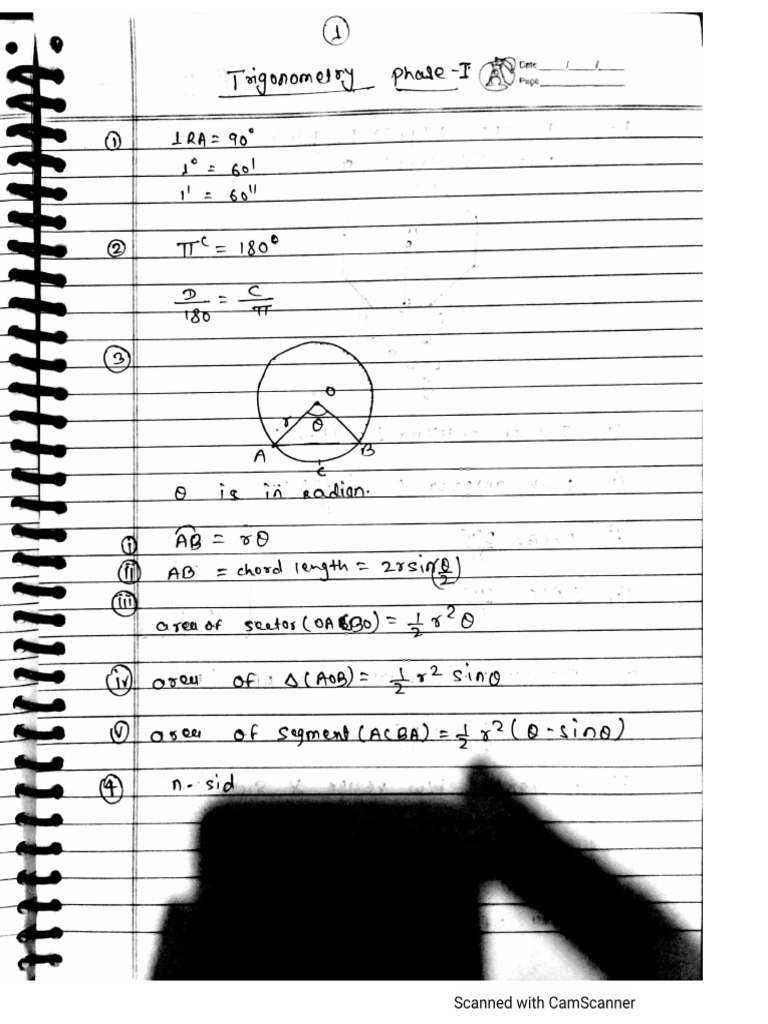 1
Trigonometry phase-I
Date / /
Page
① 1RA = 90°
1° = 60'
1' = 60"
② π^c = 180°
D/180 = C/π
③
O
r θ
A B
C
θ is in radian.
i AB = rθ
ii AB = chord length = 2rsin(θ/2)
iii
area of sector (OACBO) = 1/2 r² θ
iv area of Δ(AOB) = 1/2 r² sinθ
v area of segment (ACBA) = 1/2 r² (θ - sinθ)
④ n. sid
Scanned with CamScanner